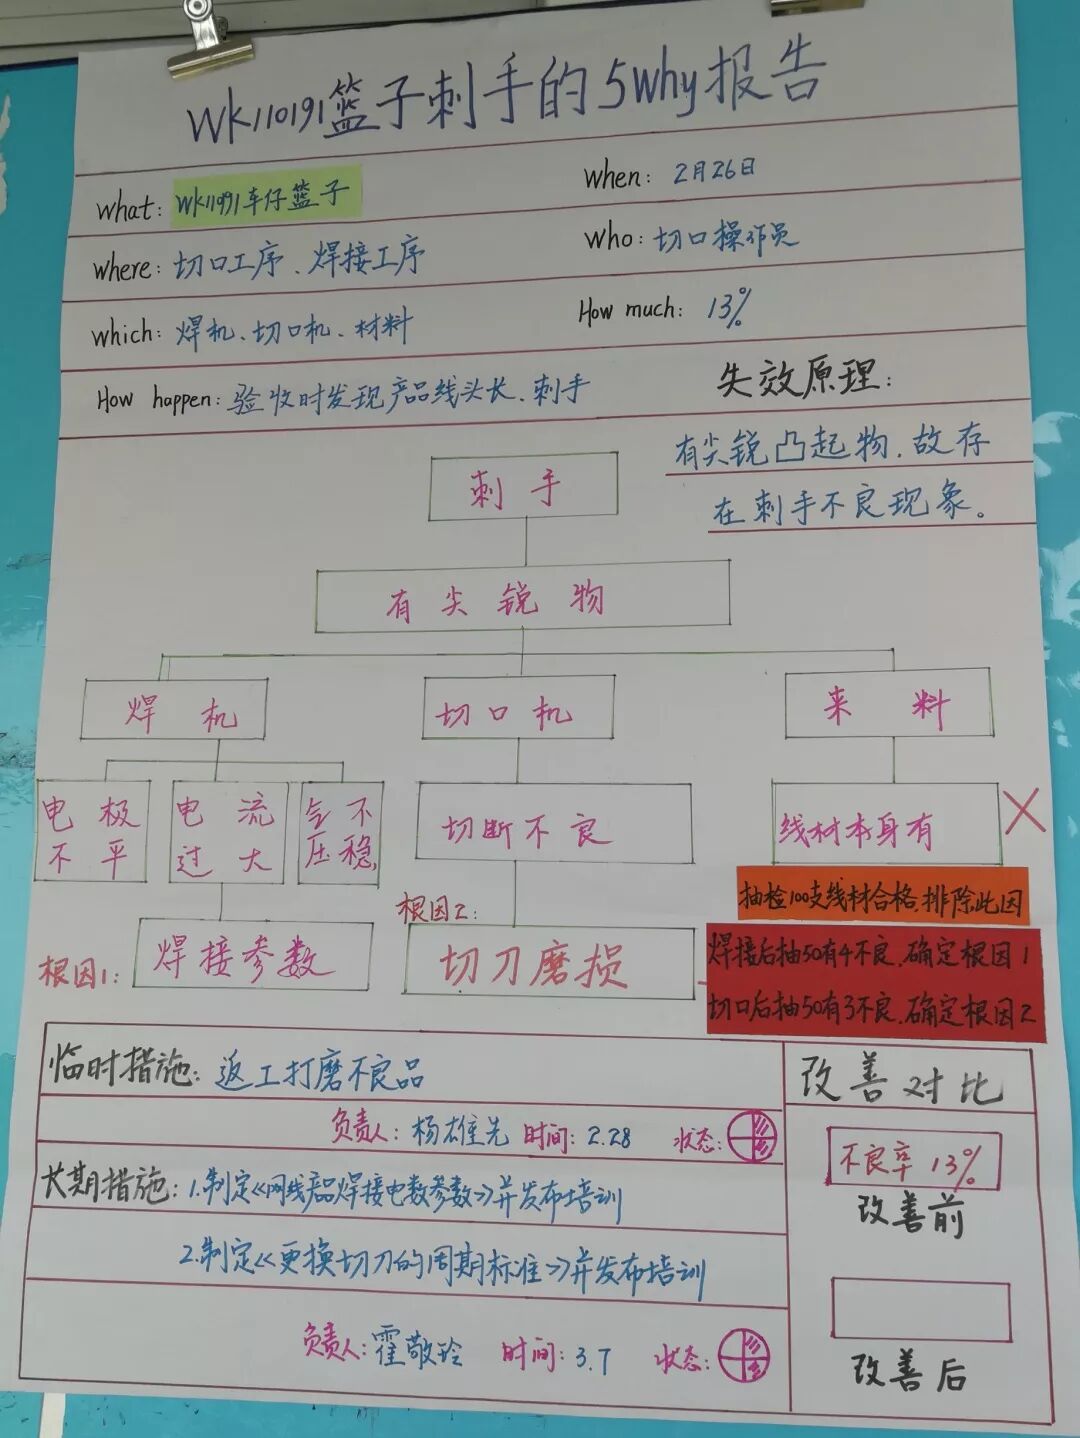 WK110191篮子刺手的5Why报告
what: WK11991车仔篮子
when: 2月26日
where: 切口工序、焊接工序
who: 切口操作员
which: 焊机、切口机、材料
How much: 13%
How happen: 验收时发现产品线头长、刺手
失效原理:
有尖锐凸起物，故存
在刺手不良现象。
刺手
有尖锐物
焊机
切口机
来料
电极不平
电流过大
气压不稳
切断不良
线材本身有
抽检100支线材合格，排除此因
根因1:
焊接参数
根因2:
切刀磨损
焊接后抽50有4不良，确定根因1
切口后抽50有3不良，确定根因2
临时措施: 返工打磨不良品
负责人: 杨雄先 时间: 2.28 状态:
长期措施: 1.制定《网线产品焊接电数参数》并发布培训
2.制定《更换切刀的周期标准》并发布培训
负责人: 霍敬玲 时间: 3.7 状态:
改善对比
不良率 13%
改善前
改善后